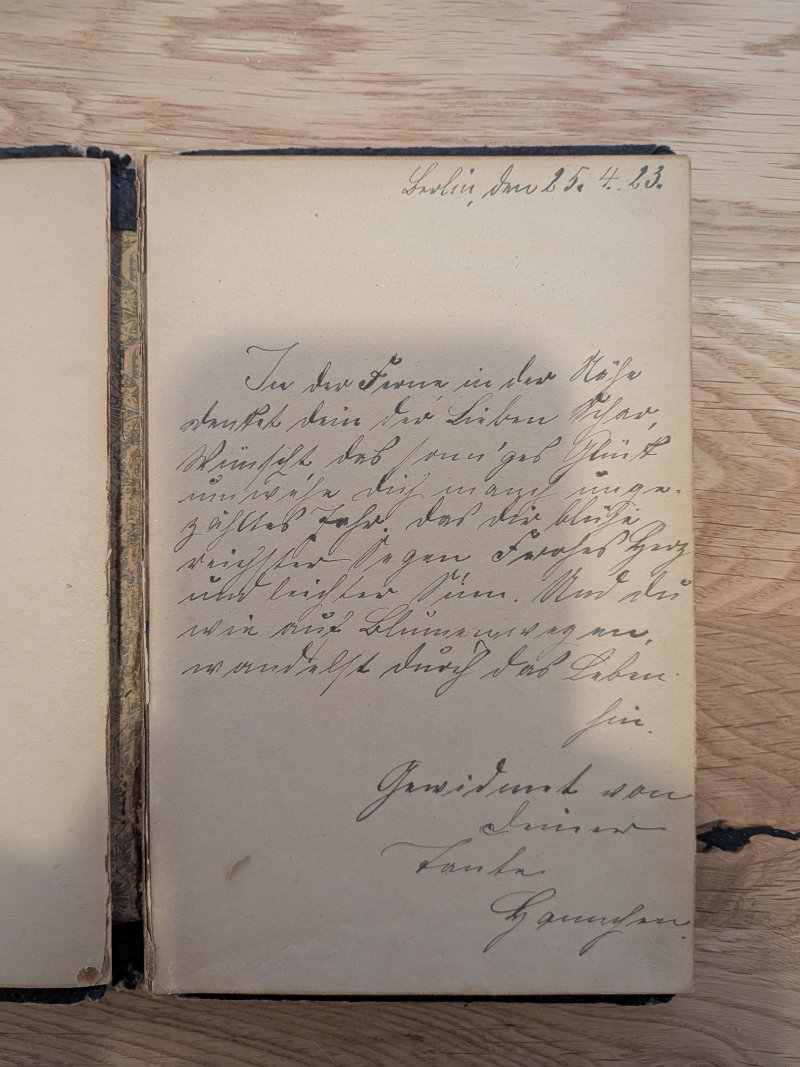 Berlin, den 25. 4. 23.
In der Ferne in der Nähe
denket dein der Lieben Schar,
Wünscht das sonn'ges Glück
umwehe dich manch unge-
zähltes Jahr. Das dir blühe
reichster Segen Frohes Herz
und leichter Sinn. Und du
wie auf Blumenwegen,
wandelst durch das Leben
hin.
Gewidmet von
Deiner
Tante
Hannchen.